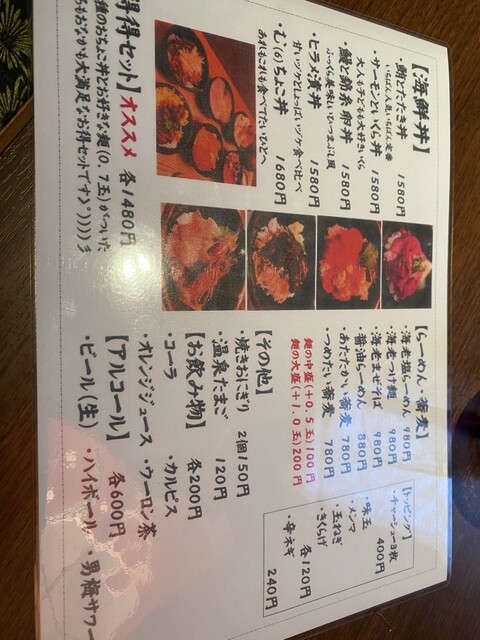 【海鮮丼】
・鮪とたたき丼 1580円
いちばん人気いちばん定番
・サーモンといくら丼 1580円
大人も子どもも大好きいくら
・鰻と錦糸卵丼 1580円
ふっくら美味しいひつまぶし風
・ヒラメ漬丼 1580円
甘いツケとしょっぱいツケ食べ比べ
・む(6)ちょこ丼 1680円
あれもこれも食べてたいひとへ
得得セット】オススメ 各1480円
種のおちょこ丼とお好きな麺(0.7玉)がついた
ちもおなかも大満足なお得セットです
【らーめん・蕎麦】
・海老塩らーめん 980円
・海老つけ麺 980円
・海老まぜそば 980円
・醤油らーめん 880円
・あたたかい蕎麦 780円
・つめたい蕎麦 780円
麺の中盛(+0.5玉)100円
麺の大盛(+1.0玉)200円
【トッピング】
・チャーシュー3枚
400円
・味玉
・メンマ
・玉ねぎ
・きくらげ
各120円
・辛ネギ
240円
【その他】
・焼きおにぎり 2個150円
・温泉たまご 120円
【お飲み物】 各200円
・コーラ ・カルピス
・オレンジジュース ・ウーロン茶
【アルコール】 各600円
・ビール(生) ・ハイボール ・男梅サワー